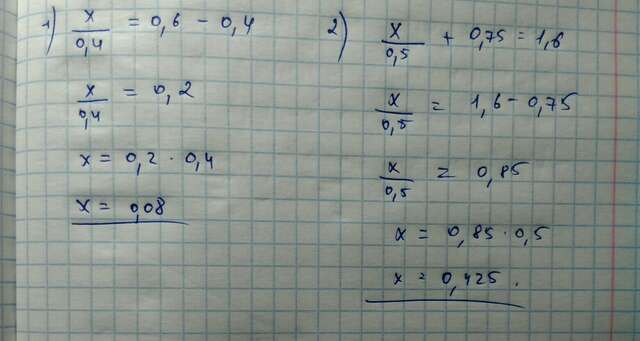 1) x/0,4 = 0,6 - 0,4
x/0,4 = 0,2
x = 0,2 · 0,4
x = 0,08
2) x/0,5 + 0,75 = 1,6
x/0,5 = 1,6 - 0,75
x/0,5 = 0,85
x = 0,85 · 0,5
x = 0,425.